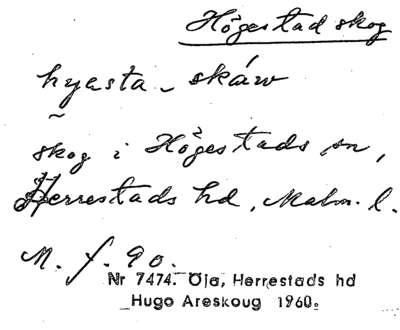 Högestad skog
hyesta - skáw
skog i Högestads sn,
Herrestads hd, Malm. l.
M. f. 90.
Nr 7474. Öja, Herrestads hd
Hugo Areskoug 1960.